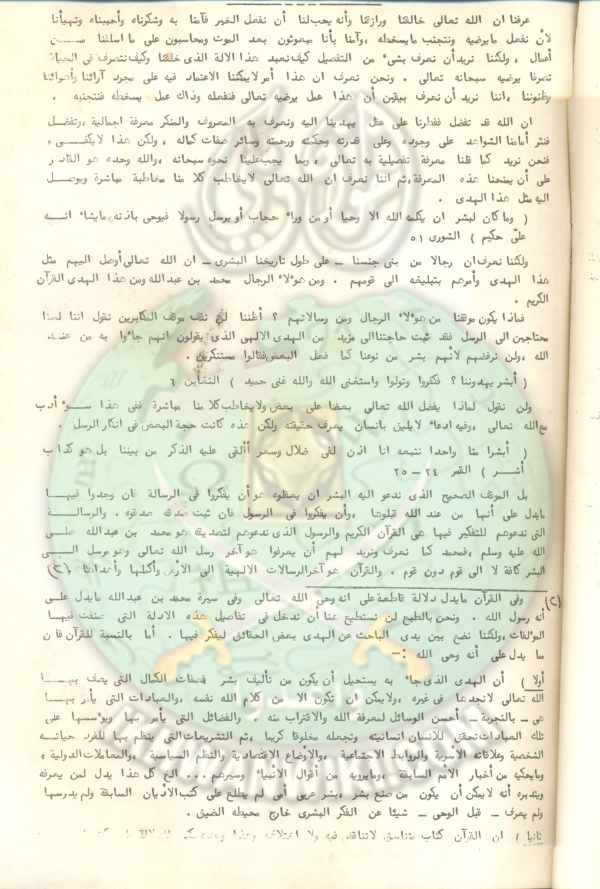 عرفنا ان الله تعالى خالقنا ورازقنا وأنه يجب لنا أن نفعل الخير فآمنا به وشكرناه وأحببناه وتهيأنا
لأن نفعل مايرضيه ونتجنب مايسخطه ، وآمنا بأنا مبعوثون بعد الموت ومحاسبون على ما اسلفنا مــن
أعمال ، ولكننا نريد أن نعرف بشىء من التفصيل كيف نعبد هذا الالة الذى خلقنا وكيف نتصرف فى الحياة
تصرفا يرضيه سبحانه تعالى . ونحن نعرف ان هذا أمر لايمكننا الاعتماد فيه على مجرد آرائنا وأهوائنا
وظنوننا ، اننا نريد أن نعرف بيقين أن هذا عمل يرضيه تعالى فنفعله وذاك عمل يسخطه فنتجنبه .
ان الله قد تفضل ففطرنا على عقل يهدينا اليه ونعرف به المعروف والمنكر معرفة اجمالية ، وتفضل
فنثر أمامنا الشواهد على وجوده وعلى قدرته وحكمته ورحمته وسائر صفات كماله ، ولكن هذا لايكفــى ،
فنحن نريد كما قلنا معرفة تفصيلية به تعالى ، وبما يجب علينا نحوه سبحانه ، والله وحده هو القادر
على أن يمنحنا هذه المعرفة ، ثم اننا نعرف ان الله تعالى لايخاطب كلا منا مخاطبة مباشرة ويوصــل
اليه مثل هذا الهدى .
( وما كان لبشر ان يكلمه الله الا وحيا أو من وراء حجاب أو يرسل رسولا فيوحى باذنه مايشاء انــه
علىّ حكيم ) الشورى ٥١
ولكننا نعرف ان رجالا من بنى جنسنا – على طول تاريخنا البشرى – ان الله تعالى أوصل اليهم مثل
هذا الهدى وأمرهم بتبليغه الى قومهم . ومن هؤلاء الرجال محمد بن عبد الله ومن هذا الهدى القرآن
الكريم .
فماذا يكون موقفنا من هؤلاء الرجال ومن رسالاتهم ؟ أظننا لن نقف موقف المكابرين نقول اننا لسنا
محتاجين الى الرسل فقد ثبت حاجتنا الى مزيد من الهدى الالهى الذى يقولون انهم جاءوا به من عنــد
الله ، ولن نرفضهم لأنهم بشر من نوعنا كما فعل البعض فقالوا مستنكرين .
( أبشر يهدوننا ؟ فكفروا وتولوا واستغنى الله والله غنى حميد ) التغابن ٦
ولن نقول لماذا يفضل الله تعالى بعضا على بعض ولا يخاطب كلا منا مباشرة ففى هذا ســوء أدب
مع الله تعالى ، وفيه ادعاء لايليق بانسان يعرف حقيقته ولكن هذه كانت حجة البعض فى انكار الرسل .
( أبشرا منا واحدا نتبعه انا اذن لفى ضلال وسعر أألقى عليه الذكر من بيننا بل هو كذاب
أشــر ) القمر ٢٤ – ٢٥
بل الموقف الصحيح الذى ندعو اليه البشر ان يعطوه هو أن يفكروا فى الرسالة فان وجدوا فيهــا
مايدل على أنها من عند الله قبلوها ، وأن يفكروا فى الرسول فان ثبت صدقه صدقوه . والرسالــة
التى ندعوهم للتفكير فيها هى القرآن الكريم والرسول الذى ندعوهم لتصديقه هو محمد بن عبد الله صلــى
الله عليه وسلم ، فمحمد كما نعرف ونريد لهم أن يعرفوا هو آخر رسل الله تعالى وهو مرسل الــى
البشر كافة لا الى قوم دون قوم . والقرآن هو آخر الرسالات الالهية الى الأرض وأكملها وأهداها . (٢)
(٢) وفى القرآن مايدل دلالة قاطعة على انه وحى الله تعالى وفى سيرة محمد بن عبد الله مايدل علــى
أنه رسول الله . ونحن بالطبع لن نستطيع هنا أن ندخل فى تفاصيل هذه الادلة التى صنفت فيهــا
المؤلفات ، ولكننا نضع بين يدى الباحث عن الهدى بعض الحقائق ليفكر فيها . أما بالنسبة للقرآن فان
مما يدل على أنه وحى الله :-
أولا ) أن الهدى الذى جاء به يستحيل أن يكون من تأليف بشر فصفات الكمال التى يصف بهــا
الله تعالى لانجدها فى غيره ، ولا يمكن ان تكون الا من كلام الله نفسه ، والعبادات التى يأمر بهــا
هى – بالتجربة – أحسن الوسائل لمعرفة الله والاقتراب منه ، والفضائل التى يأمر بها ويؤسسها على
تلك العبادات تحقق للانسان انسانيته وتجعله مخلوقا كريما ، ثم التشريعات التى ينظم بها للفرد حياتــه
الشخصية وعلاقاته الأسرية والروابط الاجتماعية ، والأوضاع الاقتصادية والنظم السياسية ، والمعاملات الدولية ،
ومايحكيه من أخبار الأمم السابقة ، ومايرويه من أقوال الأنبياء وسيرهم ... الخ كل هذا يدل لمن يعرفه
ويتدبره أنه لايمكن أن يكون من صنع بشر ، بشر عربى أمى لم يطلع على كتب الأديان السابقة ولم يدرسها
ولم يعرف – قبل الوحى – شيئا عن الفكر البشرى خارج محيطه الضيق .
ثانيا ) ان القرآن كتاب متناسق لاتناقض فيه ولا اختلاف وهذا وحده